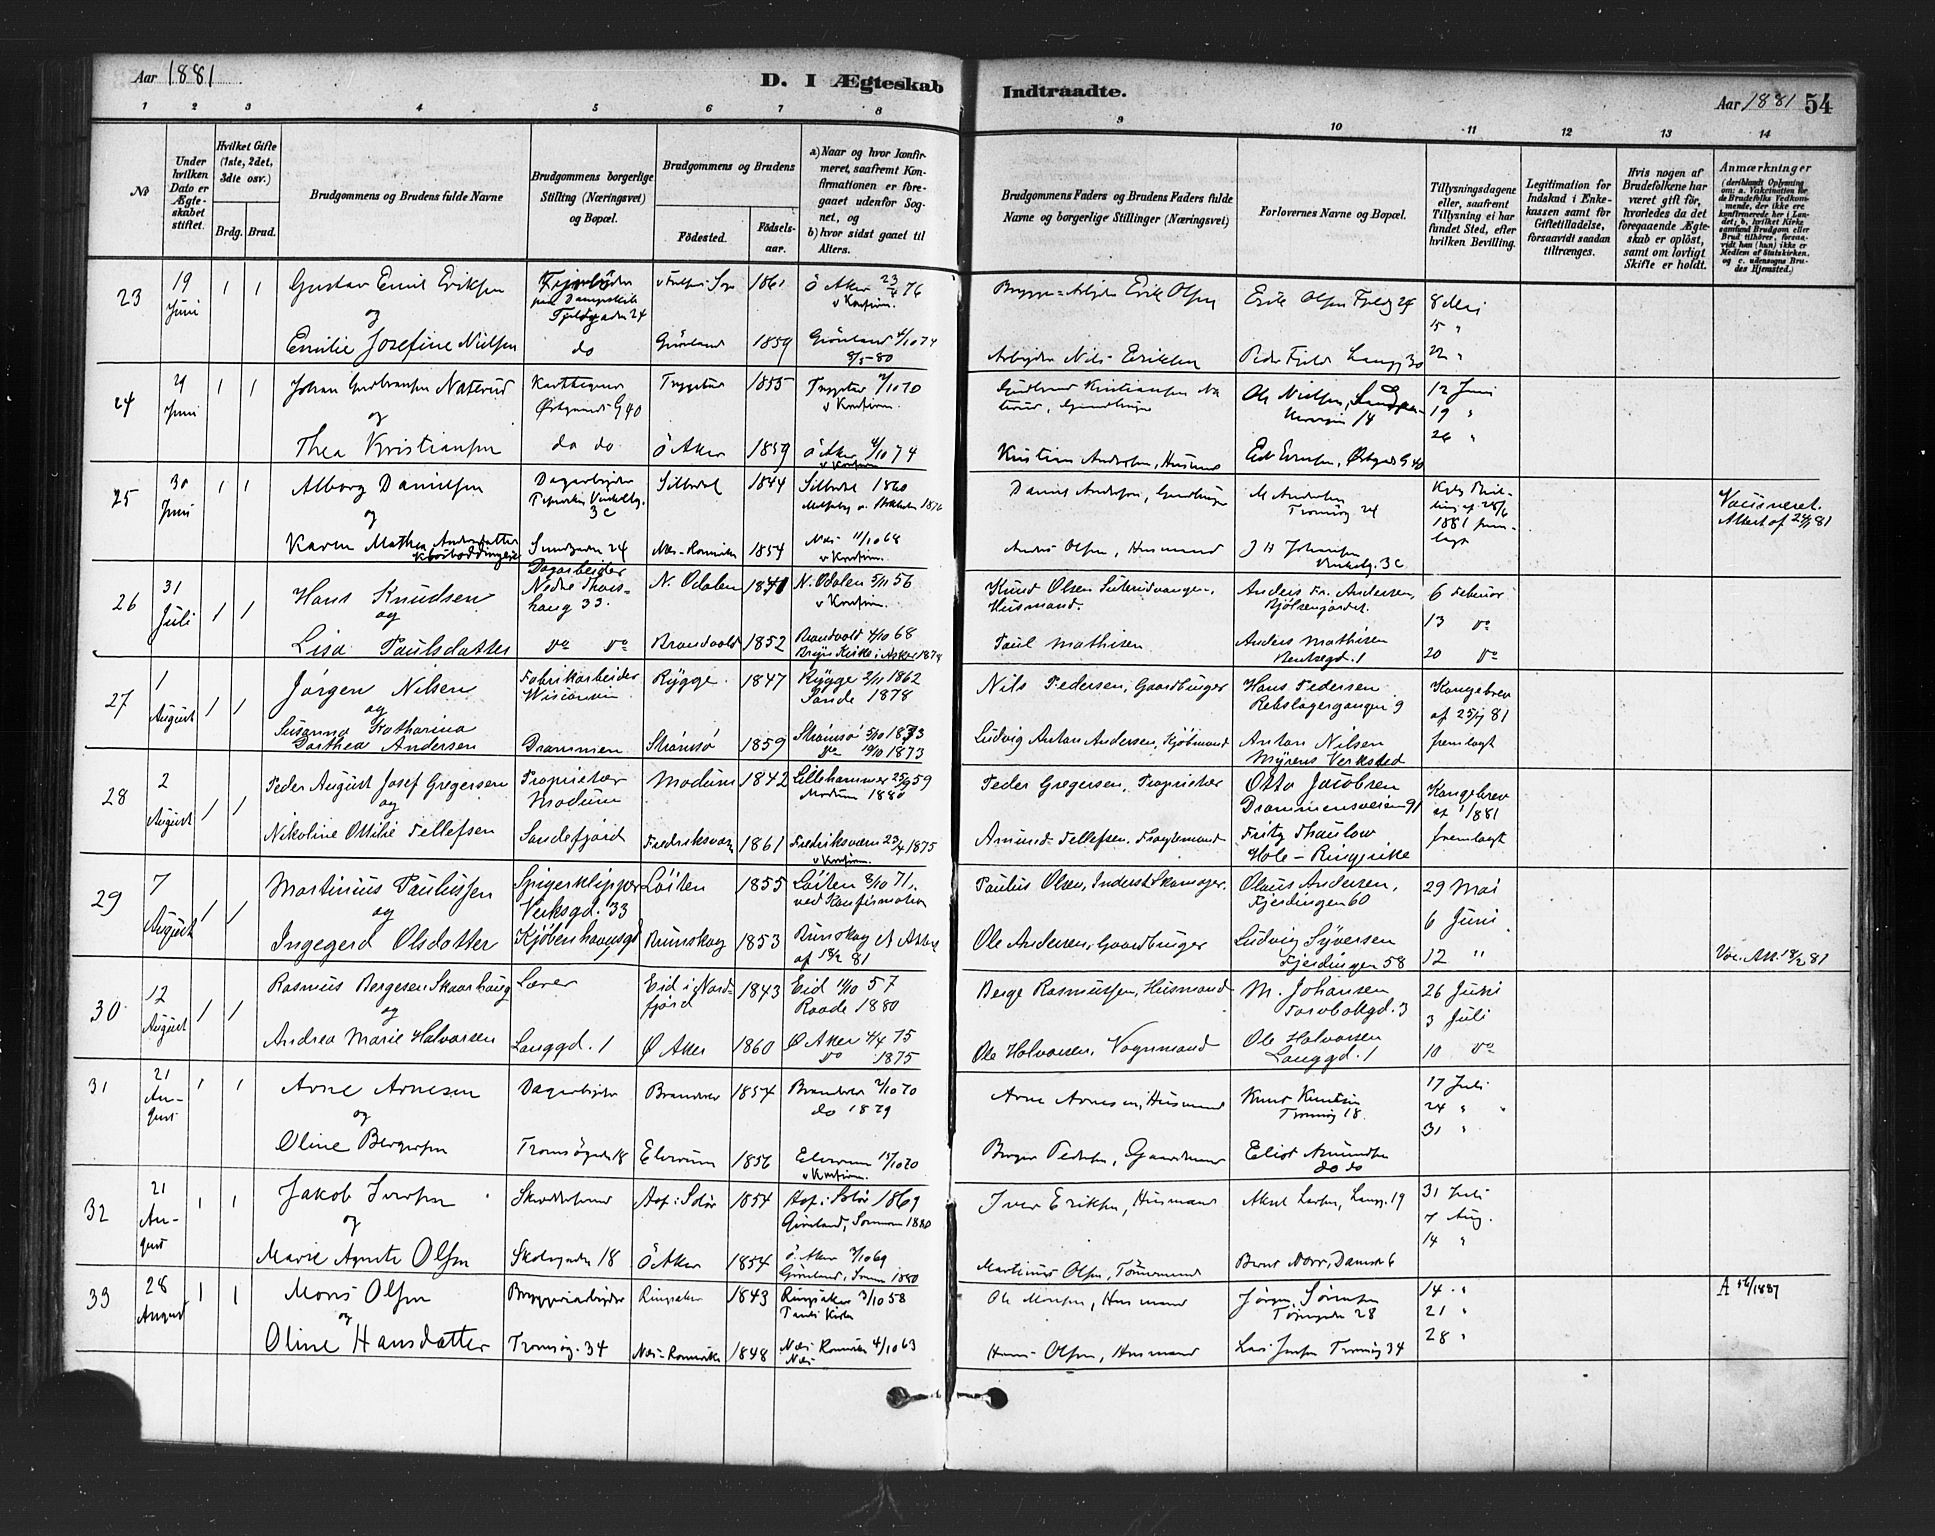 Aar 1881
D. I Ægteskab Indtraadte.
Aar 1881 54
1 2 3 4 5 6 7 8 9 10 11 12 13 14
No
Under hvilken Dato er Ægteskabet stiftet.
Hvilket Gifte (1ste, 2det, 3die osv.)
Brdg. Brud.
Brudgommens og Brudens fulde Navne
Brudgommens borgerlige Stilling (Næringsvei) og Bopæl.
Brudgommens og Brudens
Fødested. Fødselsaar.
a) Naar og hvor konfirmeret, saafremt Konfirmationen er foregaaet udenfor Sognet, og
b) hvor sidst gaaet til Alters.
Brudgommens Faders og Brudens Faders fulde Navne og borgerlige Stillinger (Næringsvei)
Forlovernes Navne og Bopæl.
Tillysningsdagene eller, saafremt Tillysning ei har fundet Sted, efter hvilken Bevilling.
Legitimation for Indskud i Enkekassen samt for Giftetilladelse, forsaavidt saadan tiltrænges.
Hvis nogen af Brudefolkene har været gift før, hvorledes da det foregaaende Ægteskab er opløst, samt om lovligt Skifte er holdt.
Anmærkninger
(deriblandt Oplysning om: a. Vakcination for de Brudefolks Vedkommende, der ikke ere konfirmerede her i Landet; b. hvilket Kirkesamfund Brudgom eller Brud tilhører, forsaavidt han (hun) ikke er Medlem af Statskirken, og c. udensogns Brudes Hjemsted.)
23 19 Juni 1 1 Gustav Emil Eriksen 1861 Ö Aker 76 v Konfirm. Erik Olsen Erik Olsen 24 8 Mai
og 15 "
Emilie Josefine Nielsen do Grønland 1859 Grønland 4/10 74 8/5-80 Arbeider Nils Eriksen Peder Fjeld Langg 30 22 "
24 29 Juni 1 1 Johan Gudbransen Naterud Østgaards G 40 Trygstad 1855 Trygstad 2/10 70 v Konfirm. Gudbrand Kristiansen Naterud, Gaardbruger Ole Nielsen, 14 12 Juni
og 19 "
Thea Kristiansen do do Ö Aker 1859 Ö Aker 4/10 74 v Konfirm Kristian Andersen, Husmand Østgds G 40 26 "
25 30 Juni 1 1 Alborg Danielsen Dagarbeider 3c 1844 1860 Daniel Andersen, Gaardbruger M Andersen Tromsøg 24 Kgl. Bevilling af 28/6 1881 fremlagt Vaccineret. Attest af 81
og
Karen Mathea Andersdatter 24 Næs-Romerike 1854 Næs 11/10 68 v Konfirm. Anders Olsen, Husmand J H Johansen 3c
26 31 Juli 1 1 Hans Knudsen Dagarbeider Nedre Thorshaug 33. N. Odalen 1840 N. Odalen 5/11 56 v Konfirm. Knud Olsen Husmand. Anders Fr. Andersen, Bjølsengårdet. 6 Februar
og 13 do
Lisa Paulsdatter do do Brandvold 1852 Brandvold 4/10 68 Bryn Kirke i Asker 1874 Paul Mathisen Anders Mathisen Rentsegd. 1 20 do
27 1 August 1 1 Jørgen Nilsen Fabrikarbeider Rygge 1847 Rygge 2/11 1862 Sande 1878 Nils Pedersen, Gaardbruger Hans Pedersen Rebslagergangen 9 Kongebrev af 25/7 81 fremlagt
og
Susanna Katharina Dorthea Andersen Drammen Strømsø 1859 Strømsø 5/10 1873 do 12/10 1873 Ludvig Anton Andersen, Kjøbmand Anton Nilsen Myrens Verksted
28 2 August 1 1 Peder August Josef Gregersen Proprietær Modum Modum 1842 Lillehammer 25/9 59 Modum 1880 Peder Gregersen, Proprietær Otto Jacobsen Drammensveien 91 Kongebrev af 1/ 1881 fremlagt
og
Nikoline Ottilie Tellefsen Sandefjord Fredriksværn 1861 Fredriksværn 23/4 1875 v Konfirm. Amund Tellefsen, Fragtemand Fritz Thaulow Hole - Ringerike
29 7 August 1 1 Martinius Paulussen Spigerklipper Verksgd. 33 Løiten 1855 Løiten 8/10 71. ved Konfirmation Paulus Olsen, Inderst Skomager. Olaus Andersen, Fjerdingen 60 29 Mai
og 6 Juni
Ingegerd Olsdatter Kjøbenhavnsgd Brunskog 1853 Brunskog af 18/2 81 Ole Andersen, Gaardbruger Ludvig Syversen Fjerdingen 58 12 " Vac. Att. 18/2 81
30 12 August 1 1 Rasmus Bergesen Skaarhaug Lærer Eid i Nordfjord 1843 Eid 11/10 57 Raade 1880 Berge Rasmussen, Husmand M. Johansen Torvbakgd. 3 26 Juni
og 3 Juli
Andrea Marie Halvorsen Langgd. 1 Ø Aker 1860 Ø Aker 4/4 75 do 1875 Ole Halvorsen, Vognmand Ole Halvorsen Langgd. 1 10 do
31 21 August 1 1 Arne Arnesen Dagarbeider Brandvær 1854 Brandvær 2/10 70 do 1879 Arne Arnesen, Husmand Knut Knutsen Tromsøg 18. 17 Juli
og 24 "
Oline Bergersen Tromsøgaden 18 Elverum 1856 Elverum 17/10 70 v Konfirm. Berger Pedersen, Gaardmand Amundsen do do 31 "
32 21 August 1 1 Jakob Iversen Aas i Solør 1854 Aas i Solør 1869 Grønland, Sommer 1880 Iver Eriksen, Husmand Aksel Larsen, Langg. 19 31 Juli
og 7 Aug.
Marie Agnete Olsen Skolegaden 18 Ö Aker 1854 Ö. Aker 3/10 69 Grønland, Sommer 1880 Martinus Olsen, Tømmermand Bernt 6 14 "
33 28 August 1 1 Mons Olsen Bryggeriarbeider Ringsaker 1843 Ringsaker 3/10 58 Pauli Kirke Ole Monsen, Husmand Jørgen Sørensen 28 14 "
og 21 "
Oline Hansdatter Tromsøg. 34 Næs-Romerike 1848 Næs Romerike 4/10 63 Næs Hans Olsen, Husmand Lars Jensen Tromsøg 34 28 "
A /1887